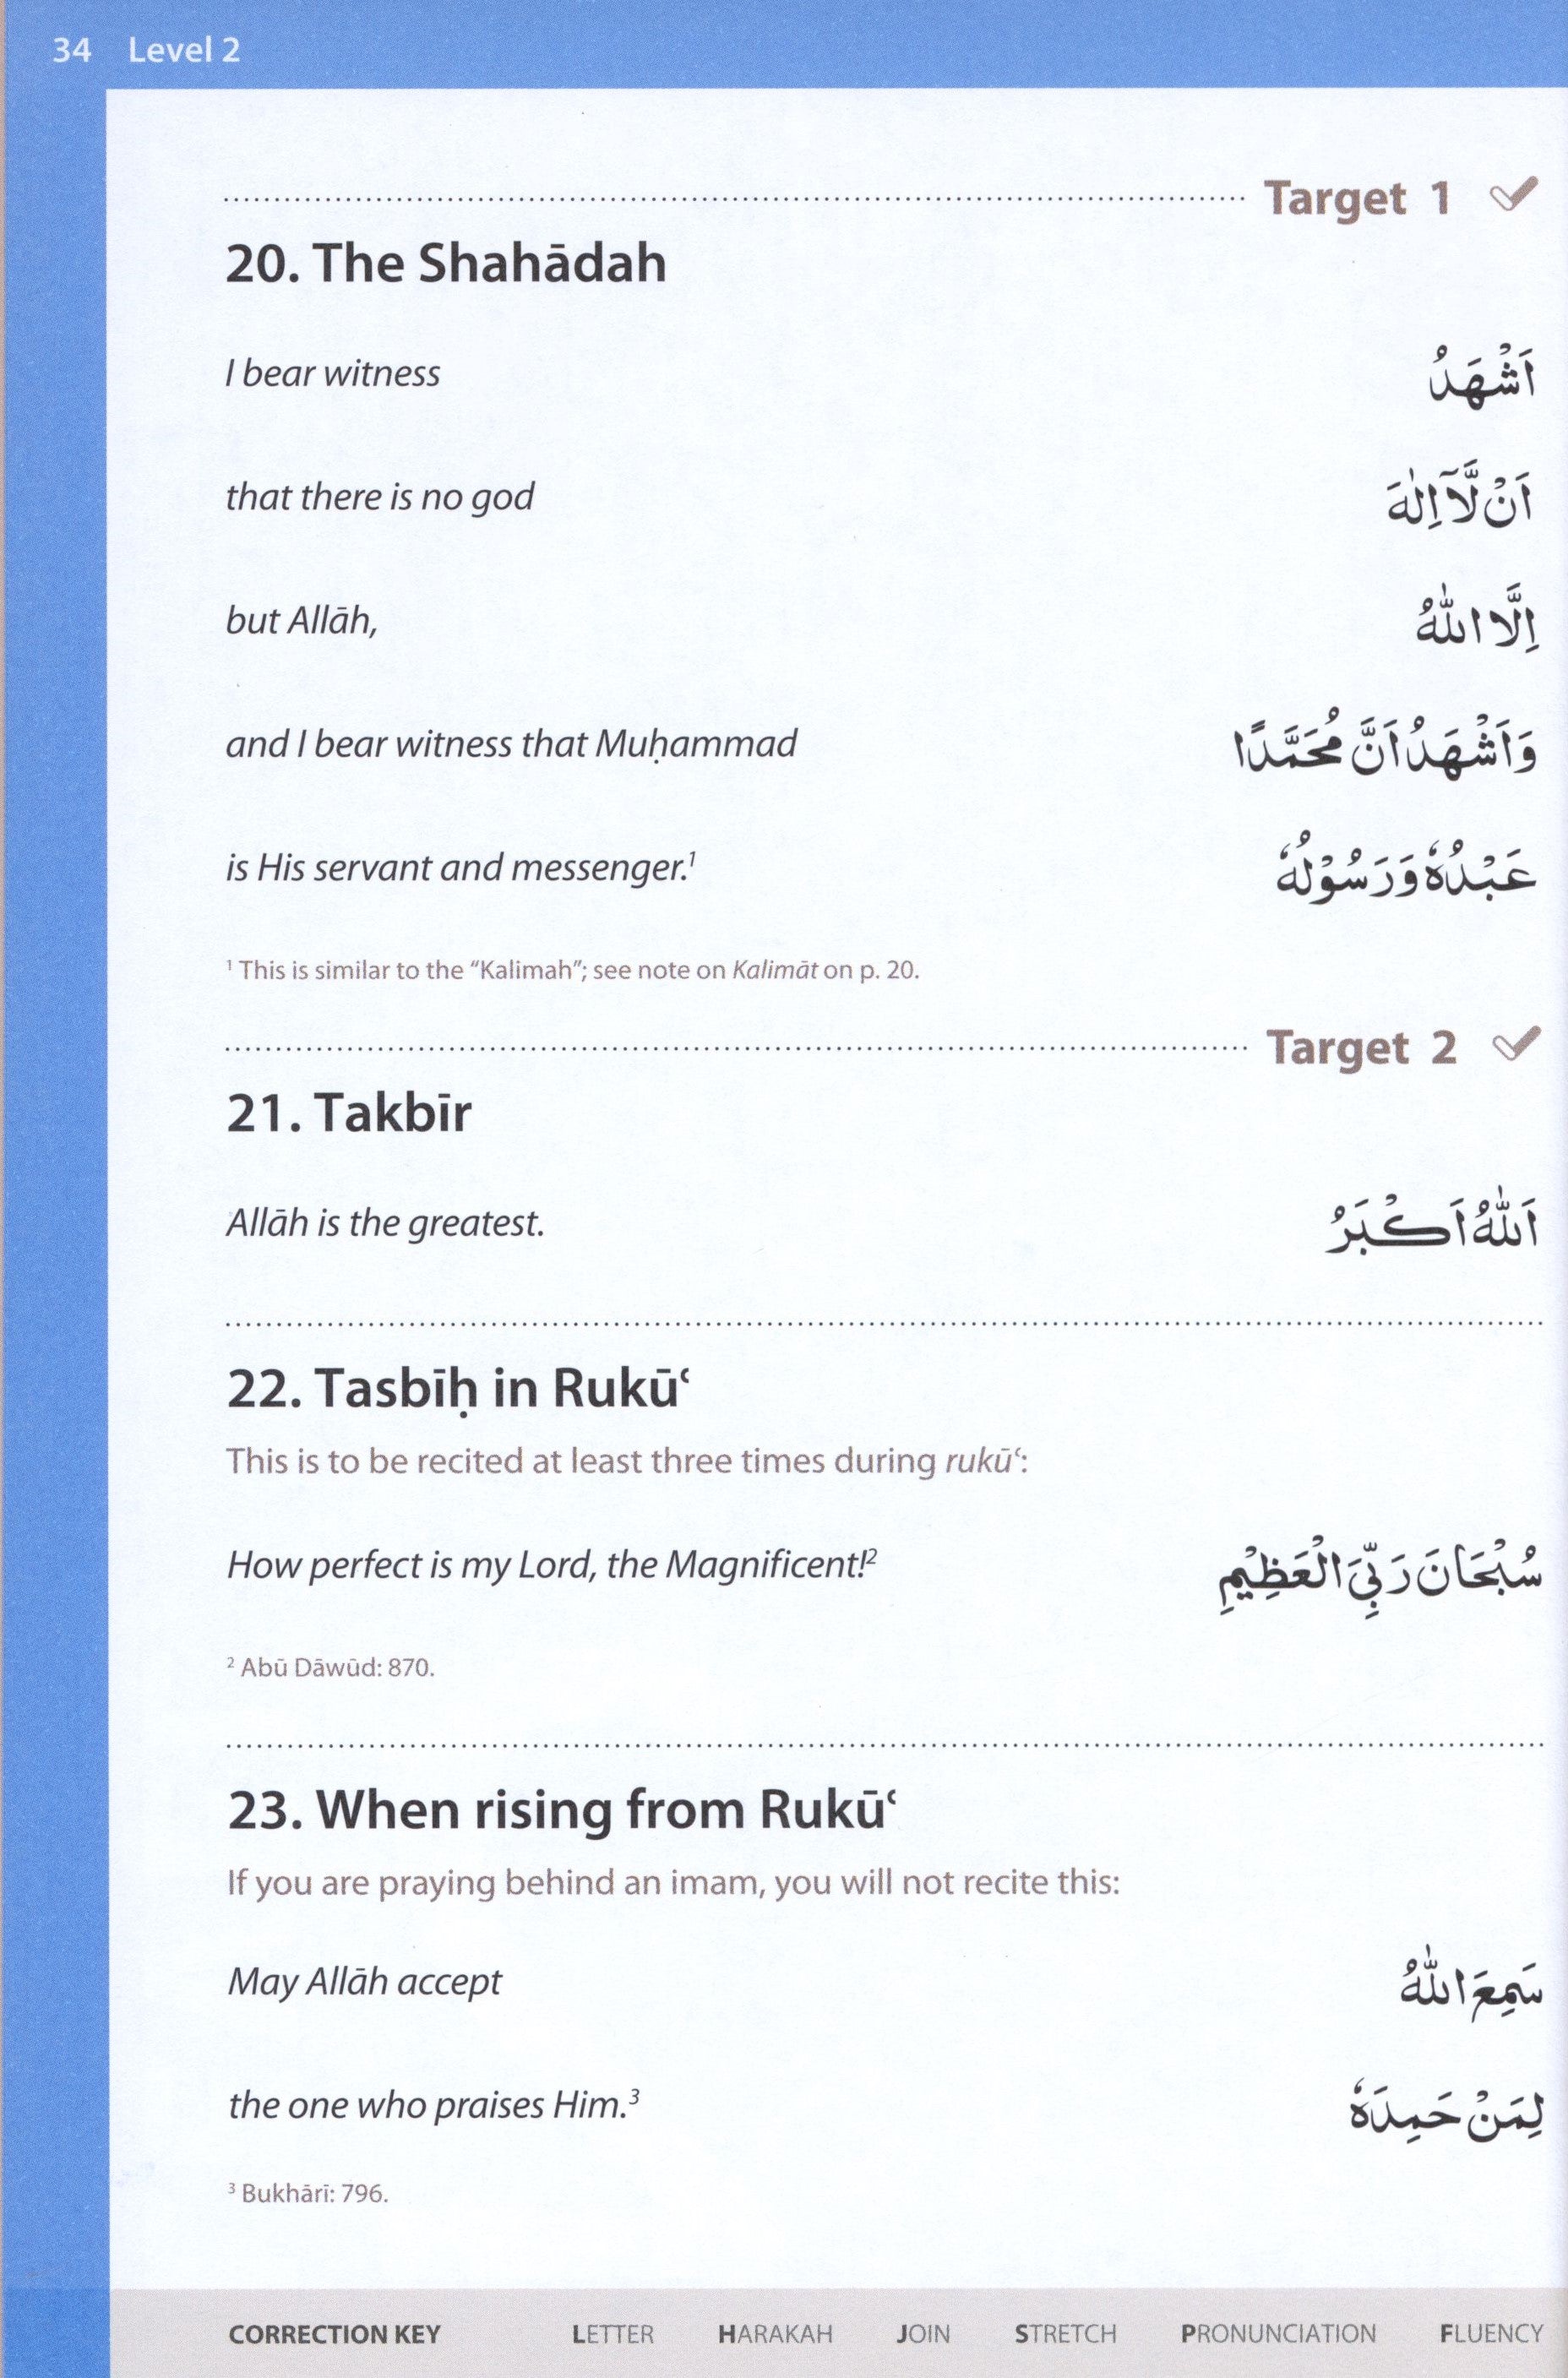 34 Level 2
Target 1
20. The Shahādah
I bear witness اَشْهَدُ
that there is no god اَنْ لَّآ اِلٰهَ
but Allāh, اِلَّا اللّٰهُ
and I bear witness that Muḥammad وَاَشْهَدُ اَنَّ مُحَمَّدًا
is His servant and messenger.¹ عَبْدُهٗ وَرَسُوْلُهٗ
¹ This is similar to the “Kalimah”; see note on Kalimāt on p. 20.
Target 2
21. Takbīr
Allāh is the greatest. اَللّٰهُ اَكْبَرُ
22. Tasbīḥ in Rukūʿ
This is to be recited at least three times during rukūʿ:
How perfect is my Lord, the Magnificent!² سُبْحَانَ رَبِّيَ الْعَظِيْمِ
² Abū Dāwūd: 870.
23. When rising from Rukūʿ
If you are praying behind an imam, you will not recite this:
May Allāh accept سَمِعَ اللّٰهُ
the one who praises Him.³ لِمَنْ حَمِدَهٗ
³ Bukhārī: 796.
CORRECTION KEY LETTER HARAKAH JOIN STRETCH PRONUNCIATION FLUENCY